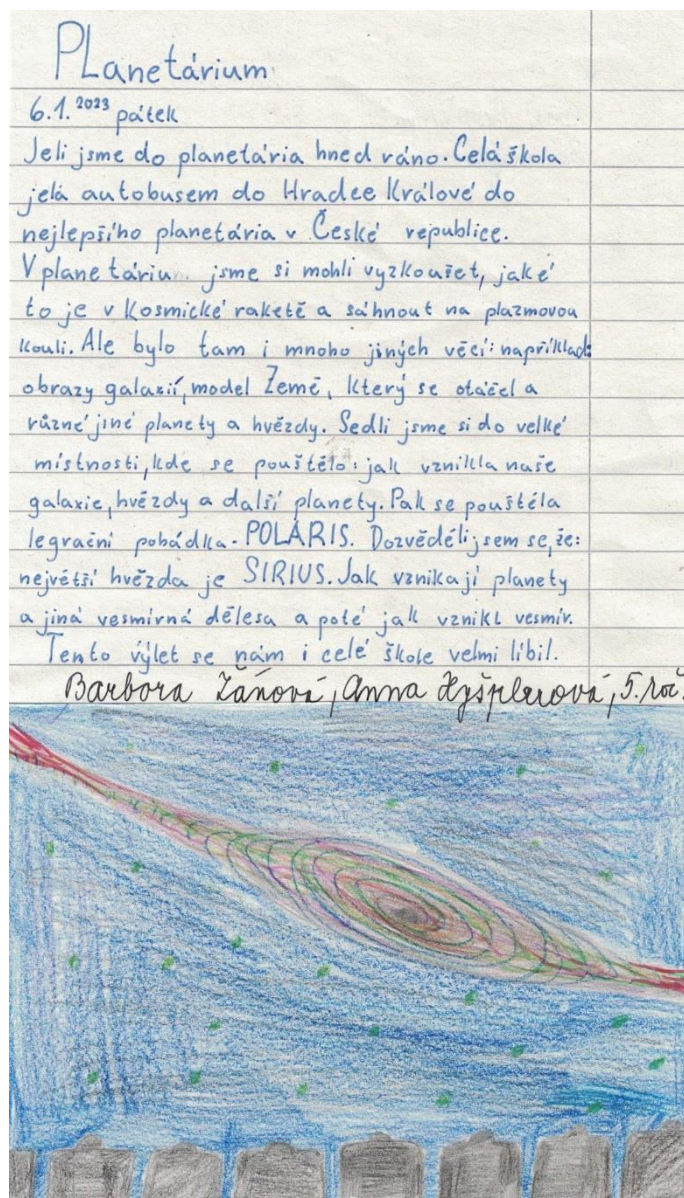 PLanetárium
6.1.2023 pátek
Jeli jsme do planetária hned ráno. Celá škola
jela autobusem do Hradce Králové do
nejlepšího planetária v České republice.
V planetáriu jsme si mohli vyzkoušet, jaké
to je v kosmické raketě a sáhnout na plazmovou
kouli. Ale bylo tam i mnoho jiných věcí: například:
obrazy galaxií, model Země, který se otáčel a
různé jiné planety a hvězdy. Sedli jsme si do velké
místnosti, kde se pouštělo: jak vznikla naše
galaxie, hvězdy a další planety. Pak se pouštěla
legrační pohádka - POLARIS. Dozvěděli jsem se, že:
největší hvězda je SIRIUS. Jak vznikají planety
a jiná vesmírná dělesa a poté jak vznikl vesmír.
Tento výlet se nám i celé škole velmi líbil.
Barbora Žáňová, Anna 5. roč.